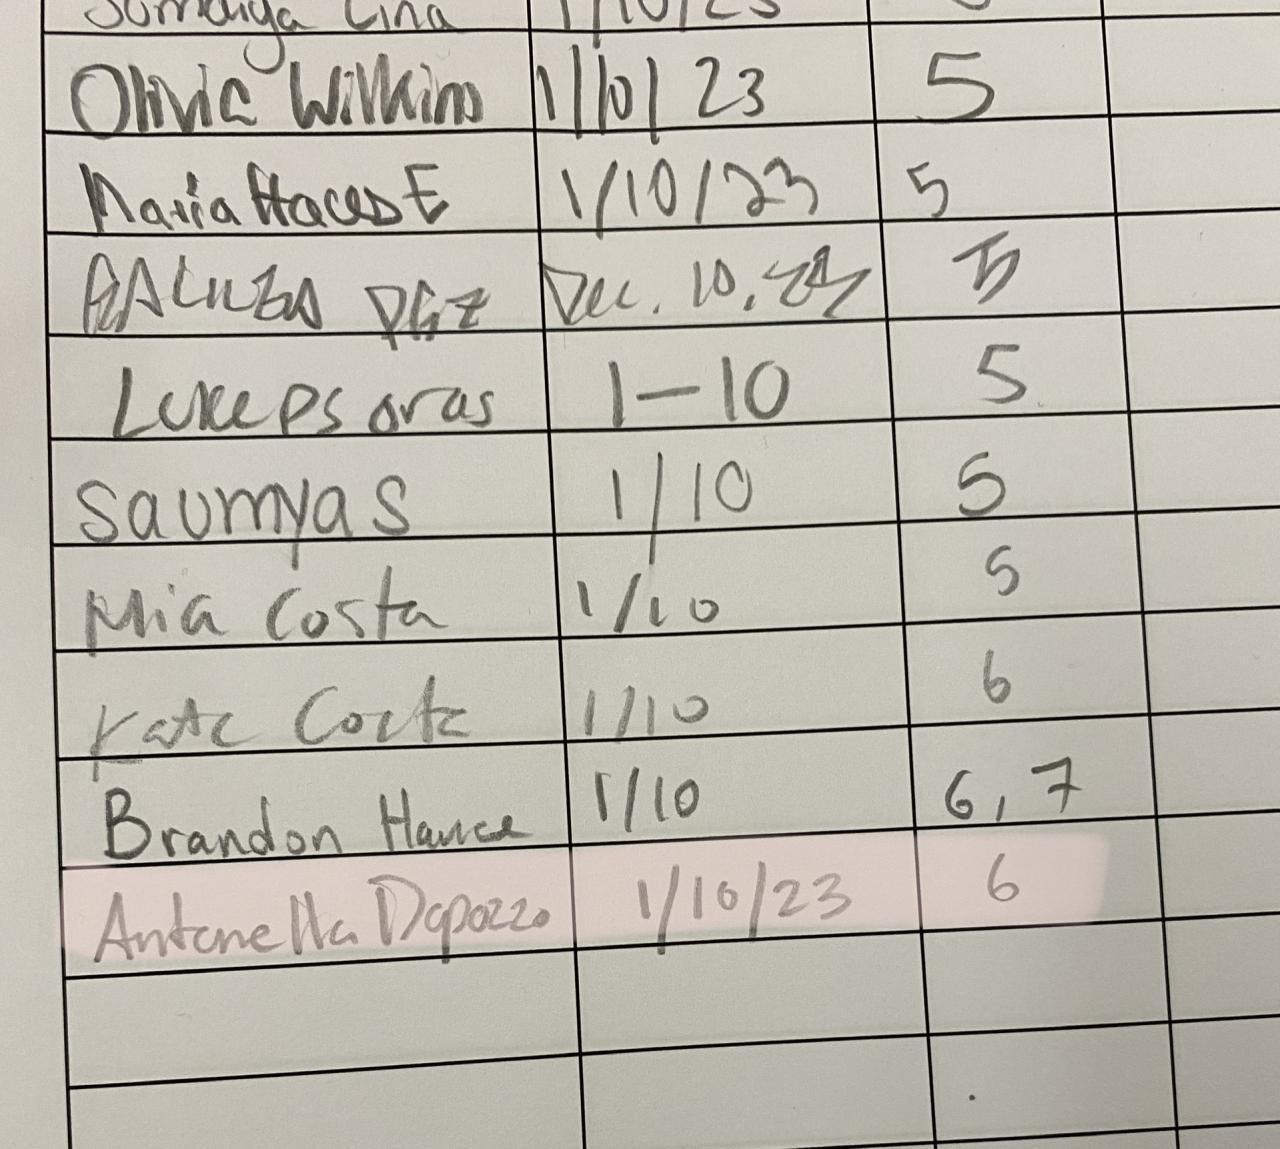 Sumaiya Lina 1/10/23
Olivia Wilkins 1/10/23 5
Maria Haces E 1/10/23 5
Dec. 10, 5
Luke Psoras 1-10 5
Saumya S 1/10 5
Mia Costa 1/10 5
Kate Costa 1/10 6
Brandon Hance 1/10 6, 7
Antonella Dapozzo 1/10/23 6